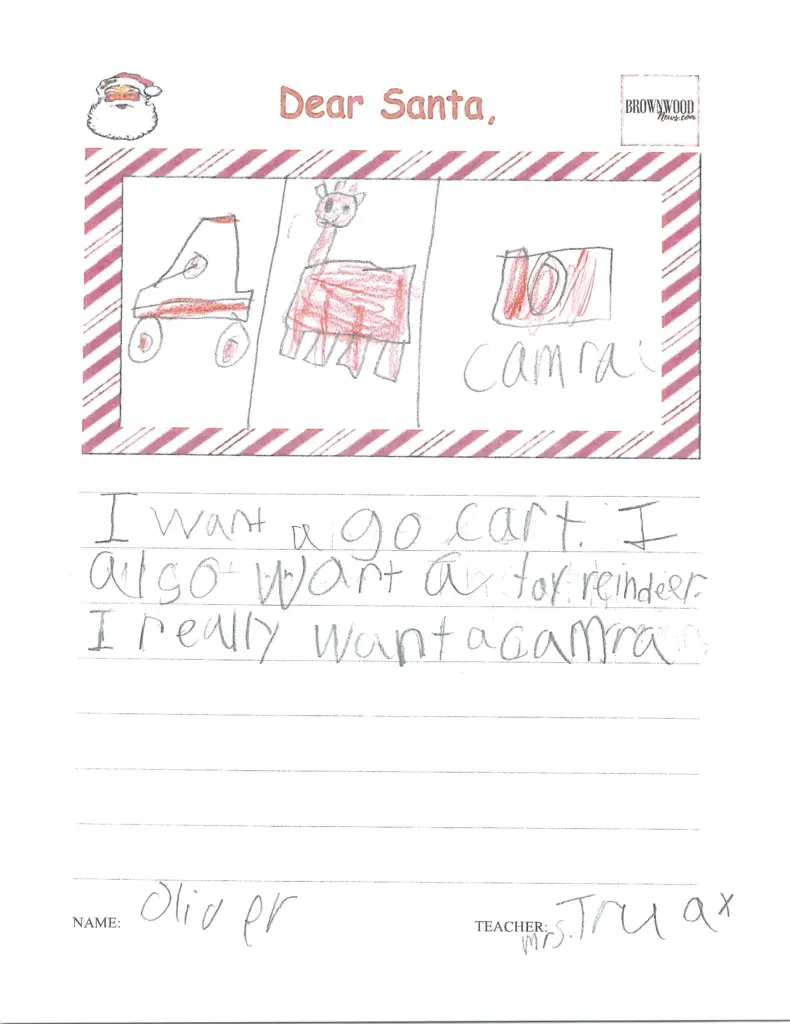 Dear Santa,
BROWNWOOD
News.com
camra
I want a go cart. I
also want a toy reindeer.
I really want a camra
NAME: Oliver
TEACHER: mrs. Truax